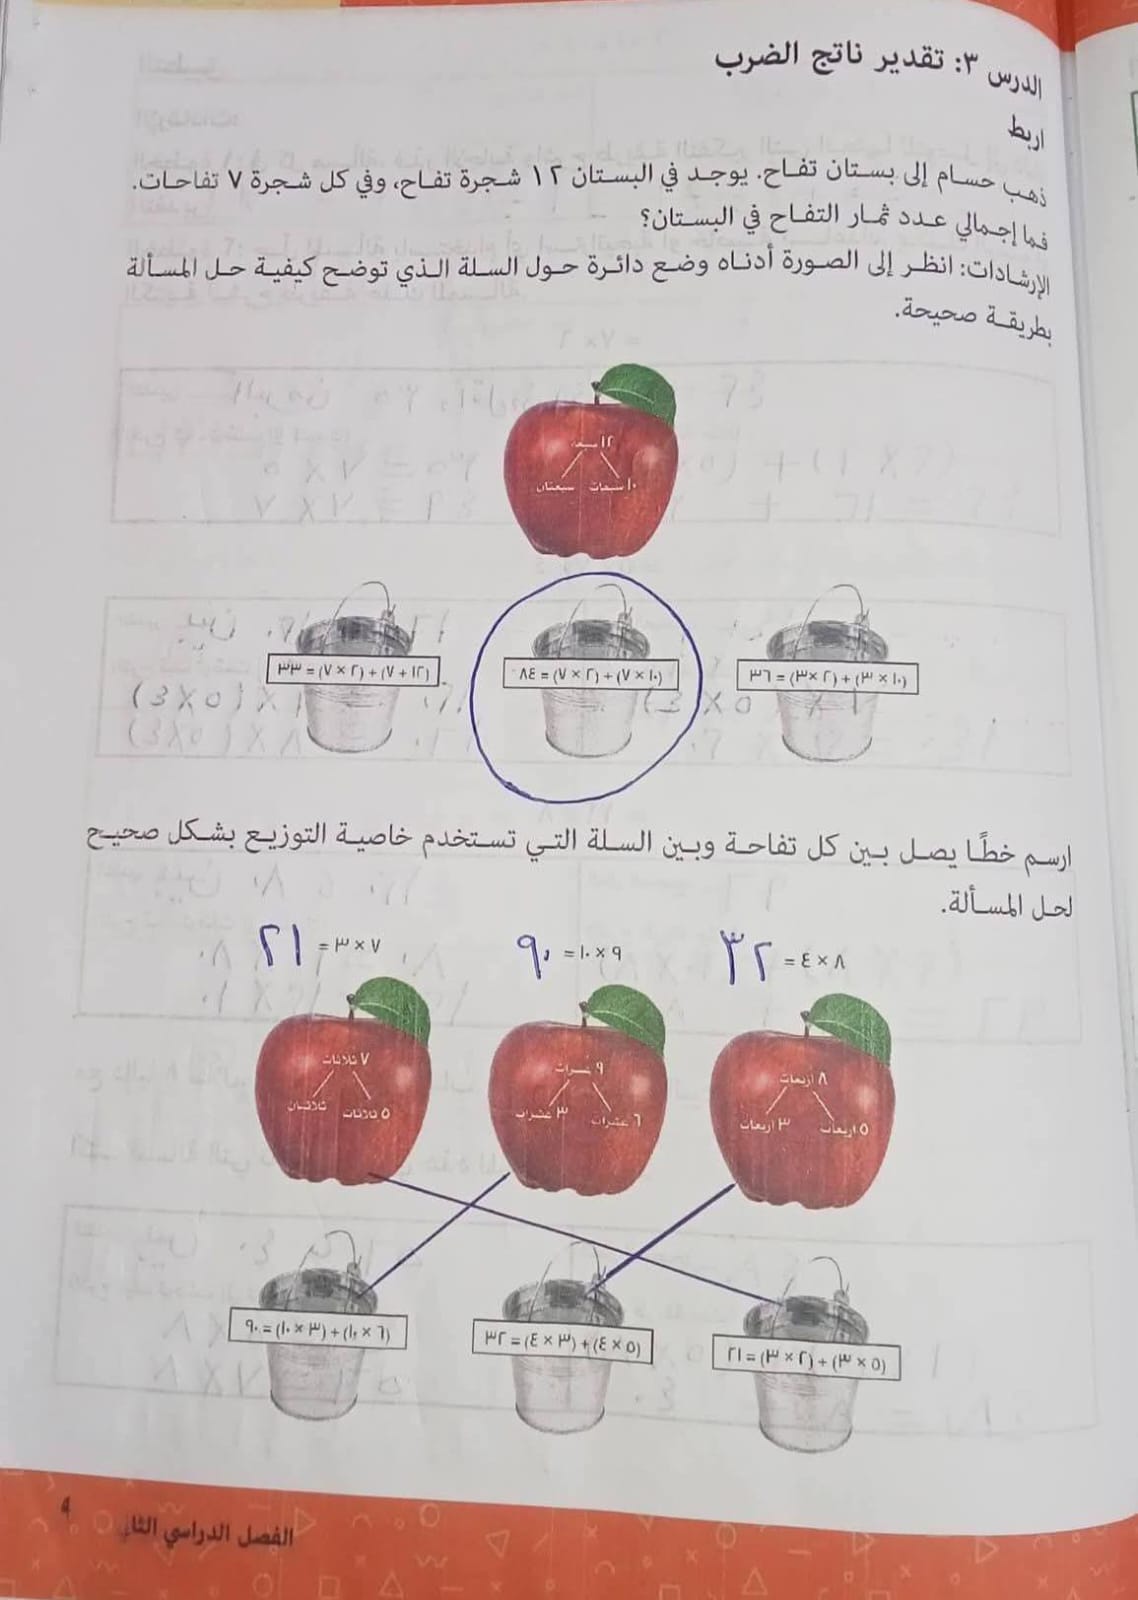 الدرس ٣: تقدير ناتج الضرب
اربط
ذهب حسام إلى بستان تفاح. يوجد في البستان ١٢ شجرة تفاح، وفي كل شجرة ٧ تفاحات.
فما إجمالي عدد ثمار التفاح في البستان؟
الإرشادات: انظر إلى الصورة أدناه وضع دائرة حول السلة الذي توضح كيفية حل المسألة
بطريقة صحيحة.
١٢ سبعة
١٠ سبعات سبعتان
(١٠ × ٣) + (٢ × ٣) = ٣٦
(١٠ × ٧) + (٢ × ٧) = ٨٤
(١٢ + ٧) + (٢ × ٧) = ٣٣
ارسم خطًا يصل بين كل تفاحة وبين السلة التي تستخدم خاصية التوزيع بشكل صحيح
لحل المسألة.
٨ × ٤ = ٣٢
٩ × ١٠ = ٩٠
٧ × ٣ = ٢١
٨ أربعات
٥ أربعات ٣ أربعات
٩ عشرات
٦ عشرات ٣ عشرات
٧ ثلاثات
٥ ثلاثات ثلاثتان
(٥ × ٣) + (٢ × ٣) = ٢١
(٥ × ٤) + (٣ × ٤) = ٣٢
(٦ × ١٠) + (٣ × ١٠) = ٩٠
الفصل الدراسي
٩